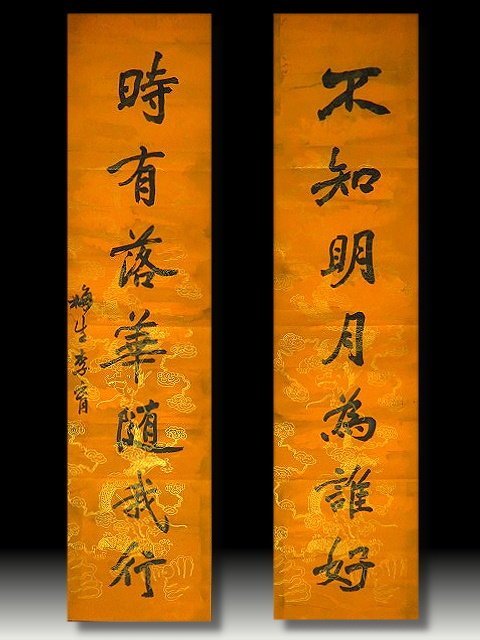 不知明月為誰好
時有落華隨我行
梅生李育